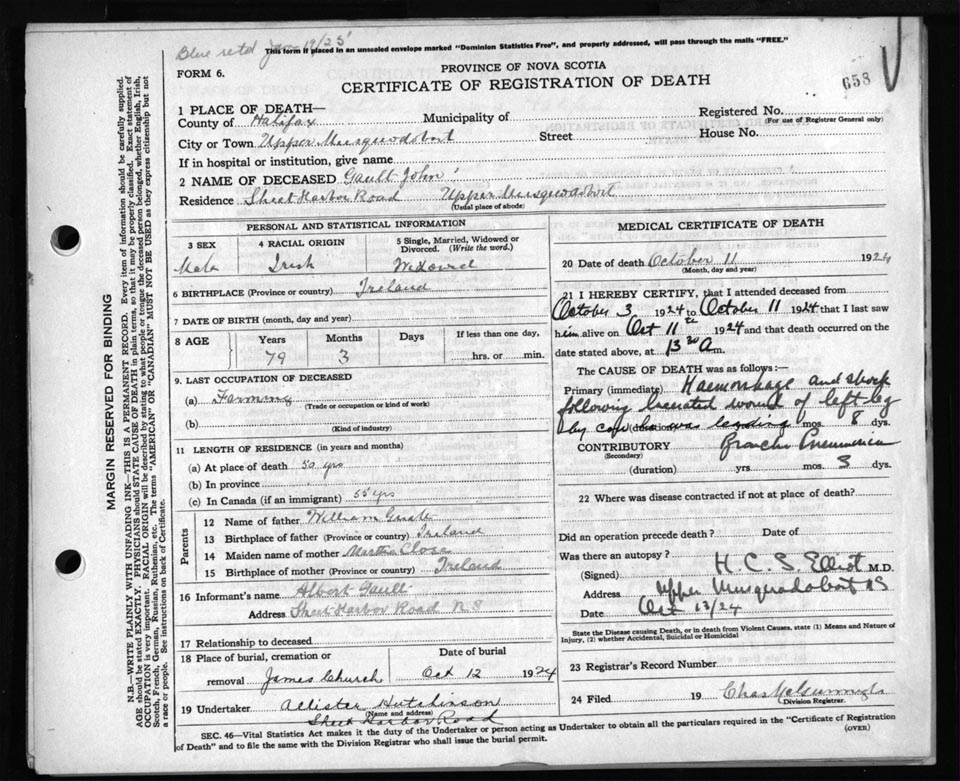 Blue retd Jan 19/25
This form if placed in an unsealed envelope marked "Dominion Statistics Free", and properly addressed, will pass through the mails "FREE."
FORM 6.
PROVINCE OF NOVA SCOTIA
CERTIFICATE OF REGISTRATION OF DEATH
658
1 PLACE OF DEATH—
County of Halifax Municipality of
Registered No.
(For use of Registrar General only)
City or Town Upper Musquodoboit Street House No.
If in hospital or institution, give name
2 NAME OF DECEASED Gault John
Residence Sheet Harbor Road Upper Musquodoboit
(Usual place of abode)
PERSONAL AND STATISTICAL INFORMATION
3 SEX 4 RACIAL ORIGIN 5 Single, Married, Widowed or Divorced. (Write the word.)
Male Irish Widowed
6 BIRTHPLACE (Province or country) Ireland
7 DATE OF BIRTH (month, day and year)
8 AGE Years Months Days If less than one day,
79 3 hrs. or min.
9. LAST OCCUPATION OF DECEASED
(a) Farming
(Trade or occupation or kind of work)
(b)
(Kind of industry)
11 LENGTH OF RESIDENCE (in years and months)
(a) At place of death 50 yrs
(b) In province
(c) In Canada (if an immigrant) 55 yrs
Parents
12 Name of father William Gault
13 Birthplace of father (Province or country) Ireland
14 Maiden name of mother Martha Close
15 Birthplace of mother (Province or country) Ireland
16 Informant's name Albert Gault
Address Sheet Harbor Road N S
17 Relationship to deceased
18 Place of burial, cremation or Date of burial
removal James Church Oct 12 1924
19 Undertaker Allister Hutchinson
(Name and address)
Sheet Harbor Road
MEDICAL CERTIFICATE OF DEATH
20 Date of death October 11 1924
(Month, day and year)
21 I HEREBY CERTIFY, that I attended deceased from
October 3 1924 to October 11 1924 that I last saw
him alive on Oct 11 1924 and that death occurred on
date stated above, at m.
The CAUSE OF DEATH was as follows:—
Primary (immediate) Haemorrhage and shock
following lacerated wound of left leg
by cow he was leading mos. 8 dys.
CONTRIBUTORY Broncho Pneumonia
(Secondary)
(duration) yrs. mos. 3 dys.
22 Where was disease contracted if not at place of death?
Did an operation precede death? Date of
Was there an autopsy?
(Signed) H. C. S. Elliot M.D.
Address Upper Musquodoboit NS
Date Oct 13/24
State the Disease causing Death, or in death from Violent Causes, state (1) Means and Nature of
Injury, (2) whether Accidental, Suicidal or Homicidal
23 Registrar's Record Number
24 Filed 19
Division Registrar.
SEC. 46—Vital Statistics Act makes it the duty of the Undertaker or person acting as Undertaker to obtain all the particulars required in the "Certificate of Registration
of Death" and to file the same with the Division Registrar who shall issue the burial permit.
(OVER)
MARGIN RESERVED FOR BINDING
N.B.—WRITE PLAINLY WITH UNFADING INK—THIS IS A PERMANENT RECORD. Every item of information should be carefully supplied.
AGE should be stated EXACTLY. PHYSICIANS should STATE CAUSE OF DEATH in plain terms, so that it may be properly classified. Exact statement of
OCCUPATION is very important. RACIAL ORIGIN will be described by stating to what people or tongue the deceased person belonged, whether English, Irish,
Scotch, French, German, Russian, Ruthenian, etc. The terms "AMERICAN" OR "CANADIAN" MUST NOT BE USED as they express citizenship but not
a race or people. See instructions on back of Certificate.